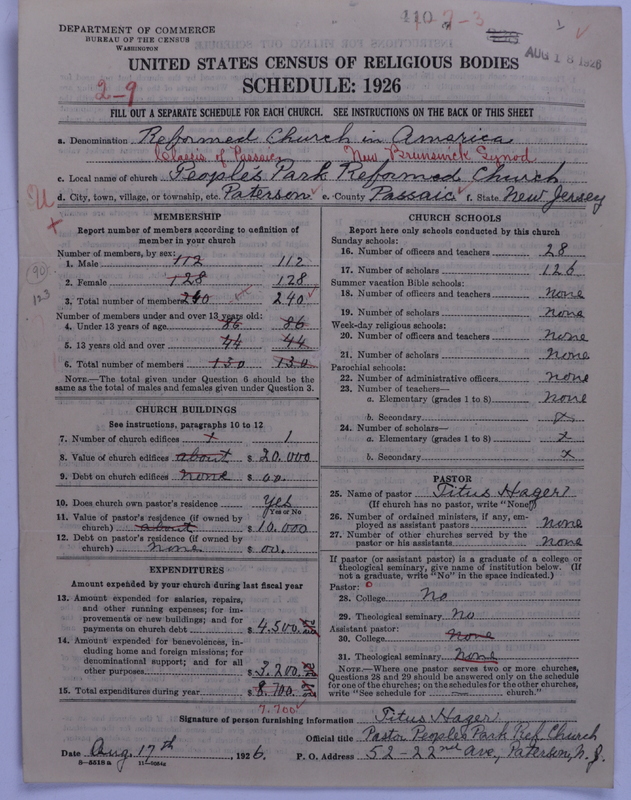 110 2-3
DEPARTMENT OF COMMERCE
BUREAU OF THE CENSUS
WASHINGTON
AUG 18 1926
UNITED STATES CENSUS OF RELIGIOUS BODIES
SCHEDULE: 1926
2-9
FILL OUT A SEPARATE SCHEDULE FOR EACH CHURCH. SEE INSTRUCTIONS ON THE BACK OF THIS SHEET
a. Denomination Reformed Church in America
Classis of Passaic New Brunswick Synod
c. Local name of church Peoples Park Reformed Church
d. City, town, village, or township, etc. Paterson e. County Passaic f. State New Jersey
MEMBERSHIP
Report number of members according to definition of
member in your church
Number of members, by sex:
1. Male 112 112
2. Female 128 128
3. Total number of members 240 240
Number of members under and over 13 years old:
4. Under 13 years of age 86 86
5. 13 years old and over 44 44
6. Total number of members 130 130
NOTE.—The total given under Question 6 should be the
same as the total of males and females given under Question 3.
90
123
CHURCH BUILDINGS
See instructions, paragraphs 10 to 12
7. Number of church edifices x 1
8. Value of church edifices about $ 20.000
9. Debt on church edifices none $ 00.
10. Does church own pastor's residence Yes
Yes or No
11. Value of pastor's residence (if owned by
church) about $ 10.000
12. Debt on pastor's residence (if owned by
church) none $ 00.
EXPENDITURES
Amount expended by your church during last fiscal year
13. Amount expended for salaries, repairs,
and other running expenses; for im-
provements or new buildings; and for
payments on church debt $ 4.500.
14. Amount expended for benevolences, in-
cluding home and foreign missions; for
denominational support; and for all
other purposes $ 3.200.
15. Total expenditures during year $ 8.700.
7.700
CHURCH SCHOOLS
Report here only schools conducted by this church
Sunday schools:
16. Number of officers and teachers 28
17. Number of scholars 126
Summer vacation Bible schools:
18. Number of officers and teachers none
19. Number of scholars none
Week-day religious schools:
20. Number of officers and teachers none
21. Number of scholars none
Parochial schools:
22. Number of administrative officers none
23. Number of teachers—
a. Elementary (grades 1 to 8) none
b. Secondary x
24. Number of scholars—
a. Elementary (grades 1 to 8) x
b. Secondary x
PASTOR
25. Name of pastor Titus Hager
(If church has no pastor, write "None")
26. Number of ordained ministers, if any, em-
ployed as assistant pastors none
27. Number of other churches served by the
pastor or his assistants none
If pastor (or assistant pastor) is a graduate of a college or
theological seminary, give name of institution below. (If
not a graduate, write "No" in the space indicated.)
Pastor:
28. College No
29. Theological seminary No
Assistant pastor:
30. College None
31. Theological seminary None
NOTE.—Where one pastor serves two or more churches,
Questions 28 and 29 should be answered only on the schedule
for one of the churches; on the schedules for the other churches,
write "See schedule for church."
Signature of person furnishing information Titus Hager
Official title Pastor Peoples Park Ref. Church
Date Aug. 17th, 1926. P. O. Address 52-22nd Ave., Paterson, N. J.
8-5518a